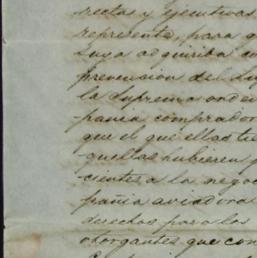 rectas y ejecutivas
represente, para q
suya adquiriba
prevension del Su
la Suprema orden
pañia comprador
que el que ellas ti
quellas hubieren p
cientes a la nego
pañia aviadora
derechos para los
otorgantes que con